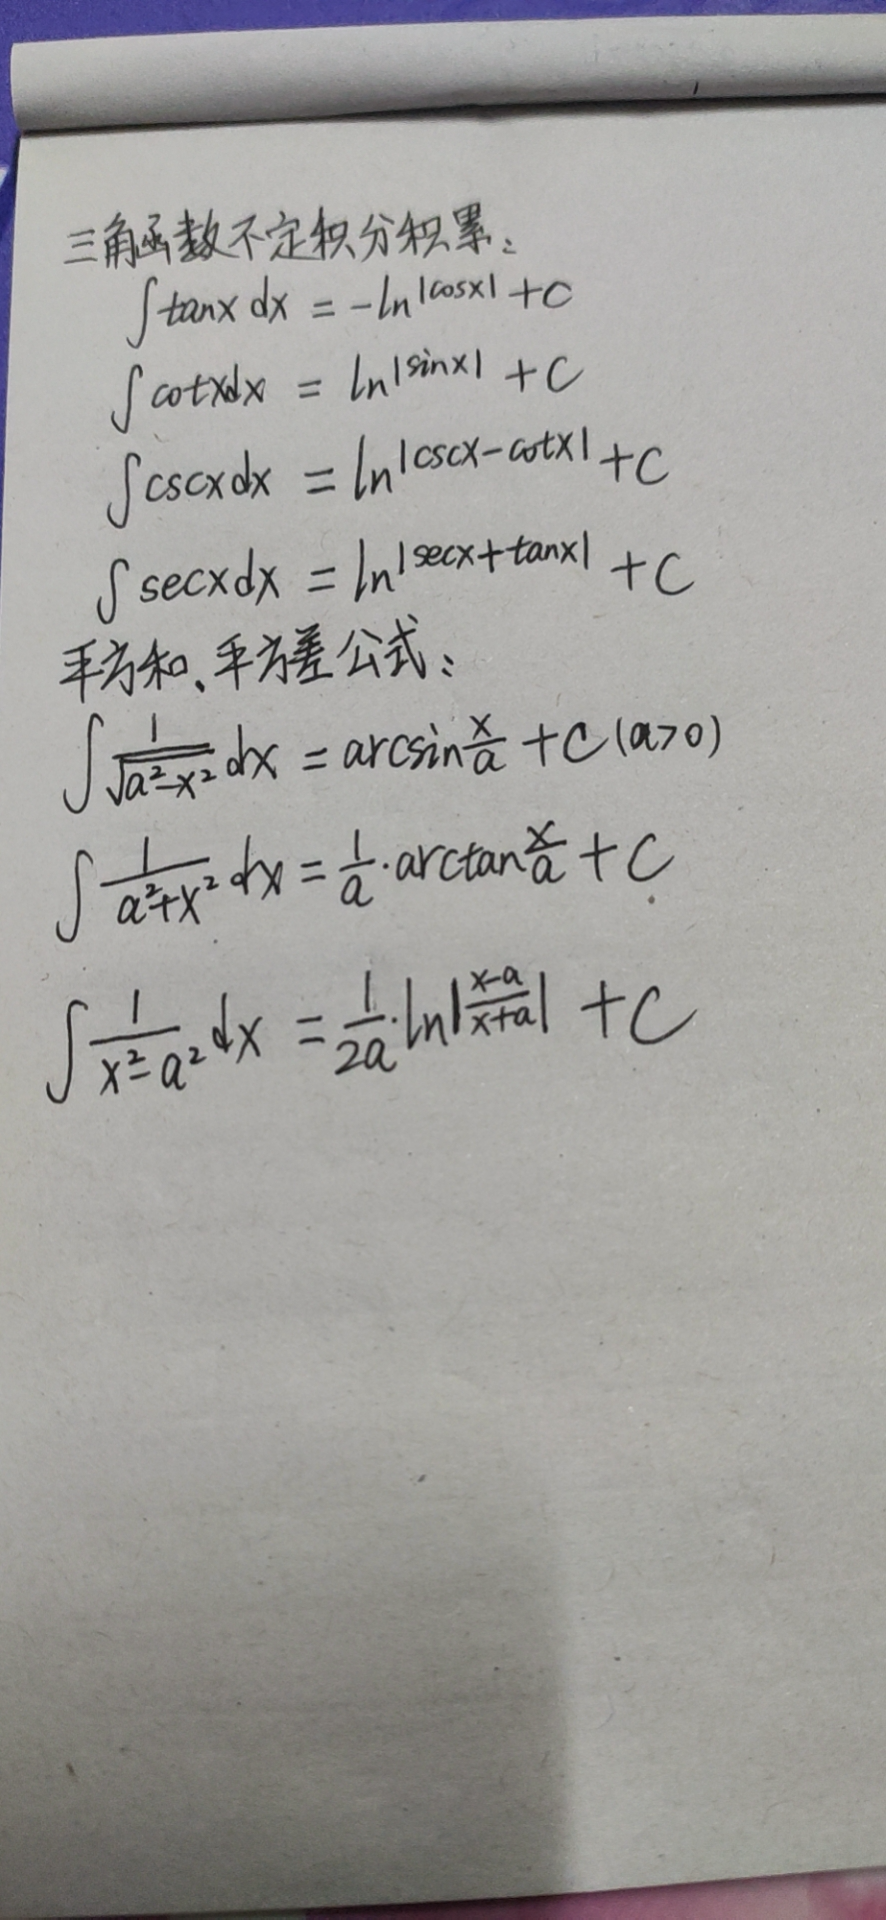 三角函数不定积分积累：
∫tanx dx = -ln|cosx| + C
∫cotxdx = ln|sinx| + C
∫cscxdx = ln|cscx-cotx| + C
∫secxdx = ln|secx+tanx| + C
平方和、平方差公式：
∫1/√(a²-x²) dx = arcsin x/a + C (a>0)
∫1/(a²+x²) dx = 1/a · arctan x/a + C
∫1/(x²-a²) dx = 1/2a · ln|(x-a)/(x+a)| + C